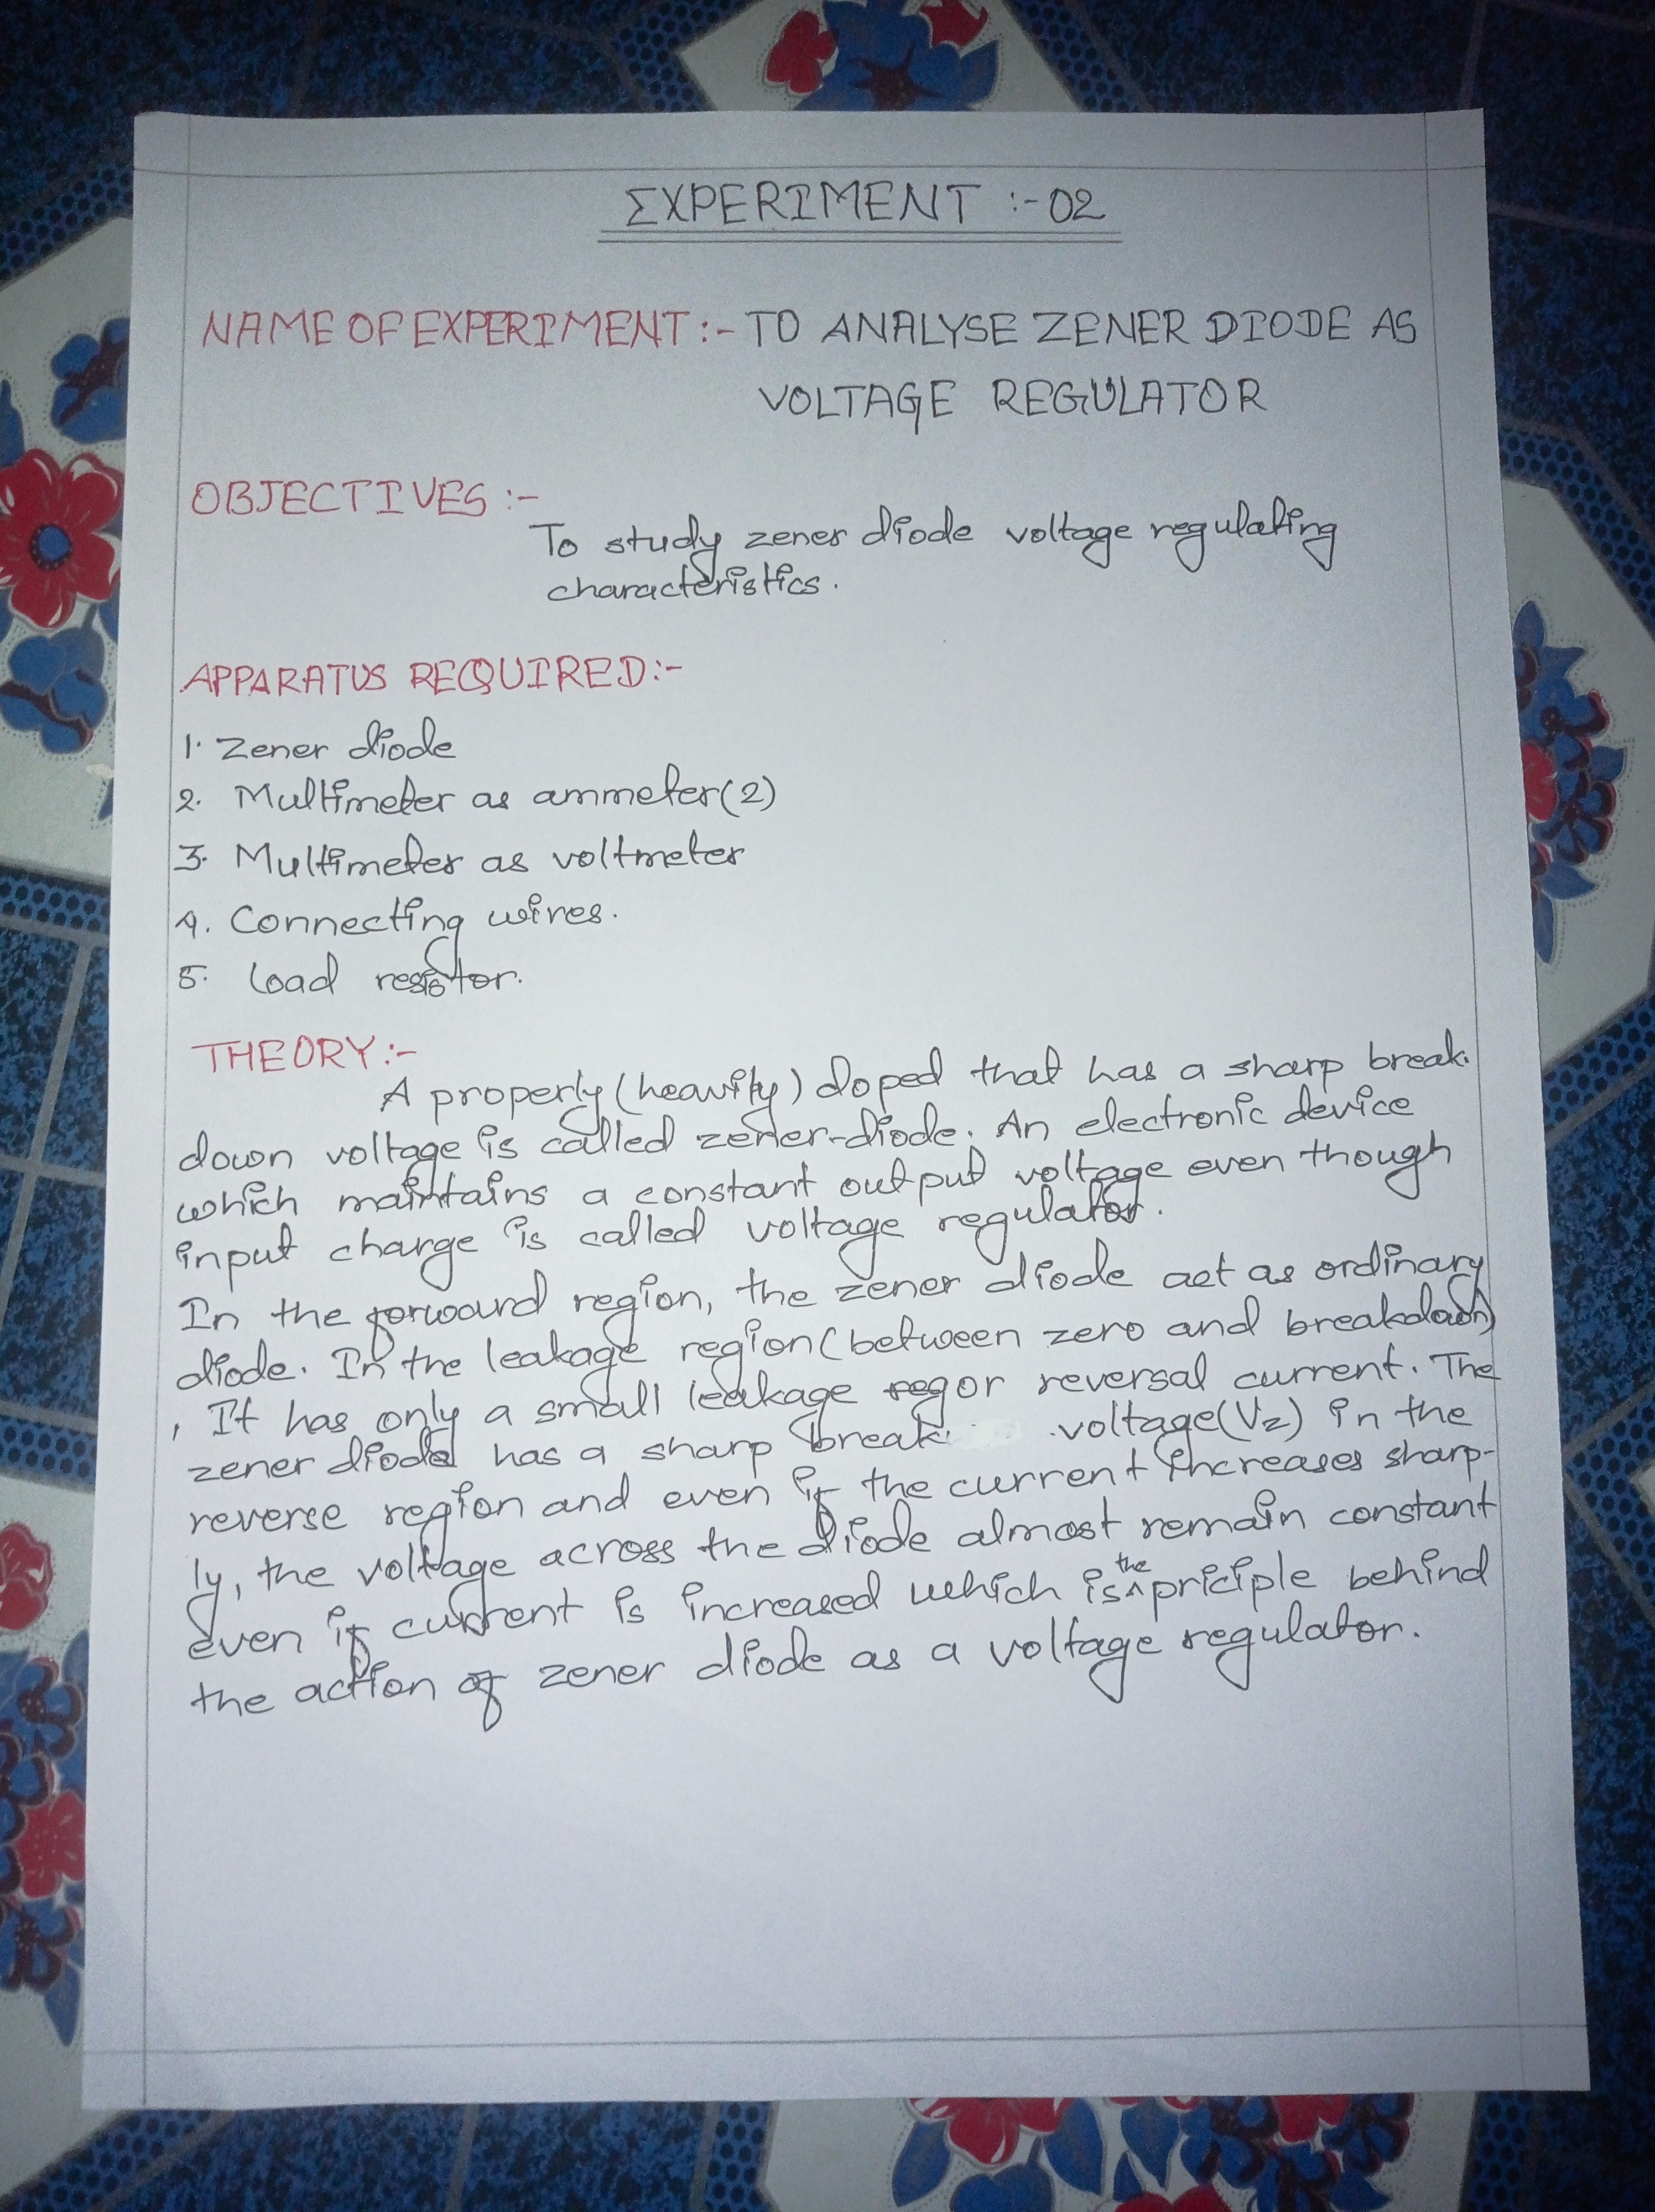 EXPERIMENT :- 02
NAME OF EXPERIMENT :- TO ANALYSE ZENER DIODE AS
VOLTAGE REGULATOR
OBJECTIVES :-
To study zener diode voltage regulating
characteristics.
APPARATUS REQUIRED:-
1. Zener diode
2. Multimeter as ammeter(2)
3. Multimeter as voltmeter
4. Connecting wires.
5. Load resistor.
THEORY:-
A properly (heavily) doped that has a sharp break.
down voltage is called zener-diode. An electronic device
which maintains a constant output voltage even though
input charge is called voltage regulator.
In the forward region, the zener diode act as ordinary
diode. In the leakage region (between zero and breakdown)
, It has only a small leakage or reversal current. The
zener diode has a sharp break voltage(Vz) in the
reverse region and even if the current increases sharp-
ly, the voltage across the diode almost remain constant
even if current is increased which is the priciple behind
the action of zener diode as a voltage regulator.